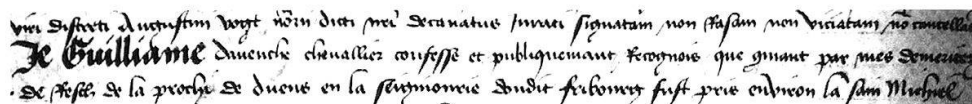 viri discreti Augustini vogt no͞rii dicti n͞ri decanatus Jurati signatam non Rasam non viciatam no͞ cancella
Je Guilliame davenche chevallier confesse et publiquemant Recognois que quant par mes demerites
de Rest la proche de Avens en la seigniorie dondit fribourg fust pris environ la sain Michiel